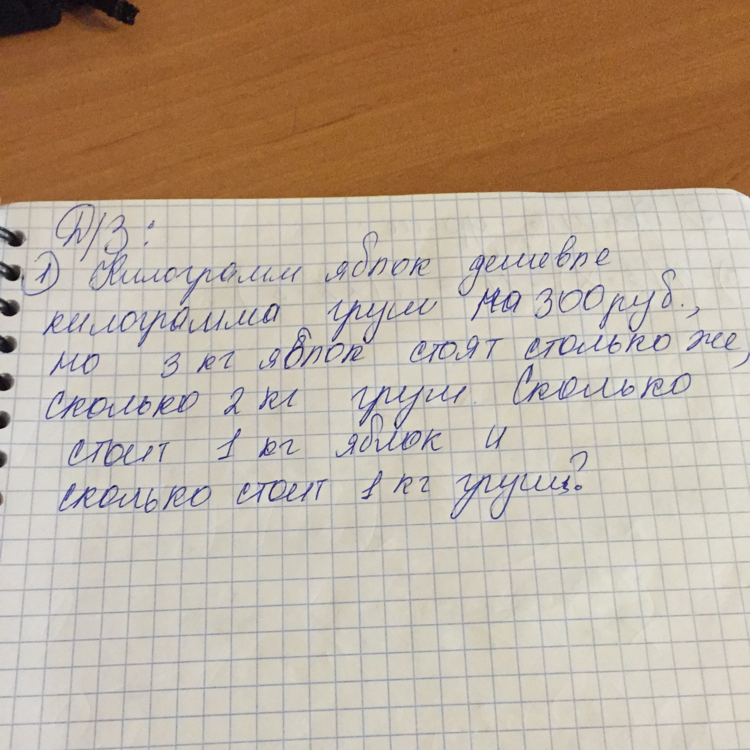 Д/З:
1) Килограмм яблок дешевле
килограмма груш на 300 руб.,
но 3 кг яблок стоят столько же,
сколько 2 кг груш. Сколько
стоит 1 кг яблок и
сколько стоит 1 кг груш?